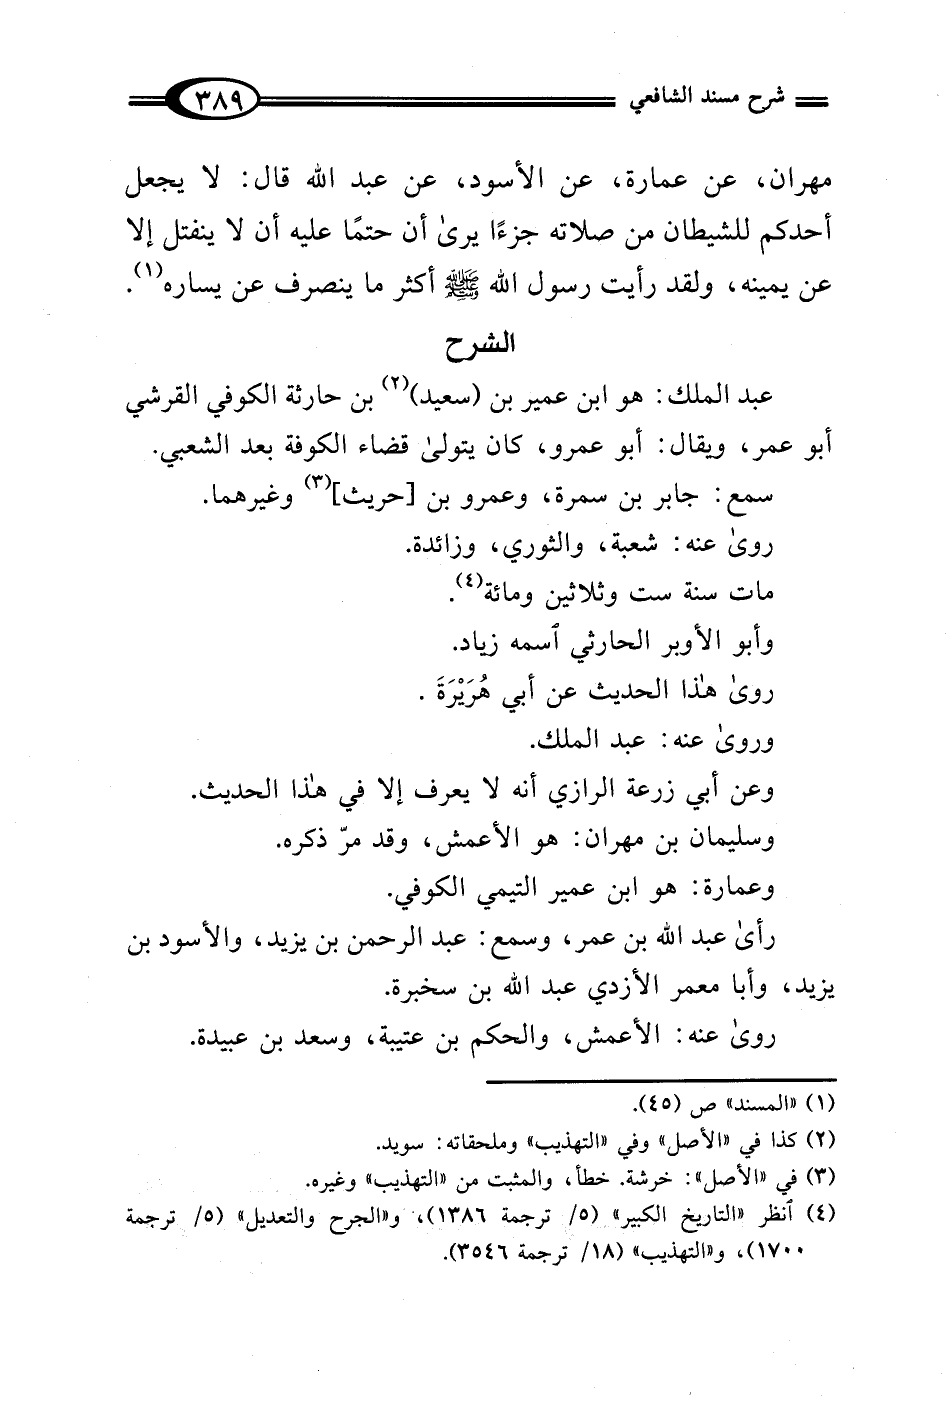 شرح مسند الشافعي ٣٨٩
مهران، عن عمارة، عن الأسود، عن عبد الله قال: لا يجعل
أحدكم للشيطان من صلاته جزءًا يرىٰ أن حتمًا عليه أن لا ينفتل إلا
عن يمينه، ولقد رأيت رسول الله ﷺ أكثر ما ينصرف عن يساره(١).
الشرح
عبد الملك: هو ابن عمير بن (سعيد)(٢) بن حارثة الكوفي القرشي
أبو عمر، ويقال: أبو عمرو، كان يتولىٰ قضاء الكوفة بعد الشعبي.
سمع: جابر بن سمرة، وعمرو بن [حريث](٣) وغيرهما.
روىٰ عنه: شعبة، والثوري، وزائدة.
مات سنة ست وثلاثين ومائة(٤).
وأبو الأوبر الحارثي ٱسمه زياد.
روىٰ هٰذا الحديث عن أبي هُرَيْرَةَ .
وروىٰ عنه: عبد الملك.
وعن أبي زرعة الرازي أنه لا يعرف إلا في هٰذا الحديث.
وسليمان بن مهران: هو الأعمش، وقد مرّ ذكره.
وعمارة: هو ابن عمير التيمي الكوفي.
رأىٰ عبد الله بن عمر، وسمع: عبد الرحمن بن يزيد، والأسود بن
يزيد، وأبا معمر الأزدي عبد الله بن سخبرة.
روىٰ عنه: الأعمش، والحكم بن عتيبة، وسعد بن عبيدة.
(١) «المسند» ص (٤٥).
(٢) كذا في «الأصل» وفي «التهذيب» وملحقاته: سويد.
(٣) في «الأصل»: خرشة. خطأ، والمثبت من «التهذيب» وغيره.
(٤) ٱنظر «التاريخ الكبير» (٥/ ترجمة ١٣٨٦)، و«الجرح والتعديل» (٥/ ترجمة
١٧٠٠)، و«التهذيب» (١٨/ ترجمة ٣٥٤٦).